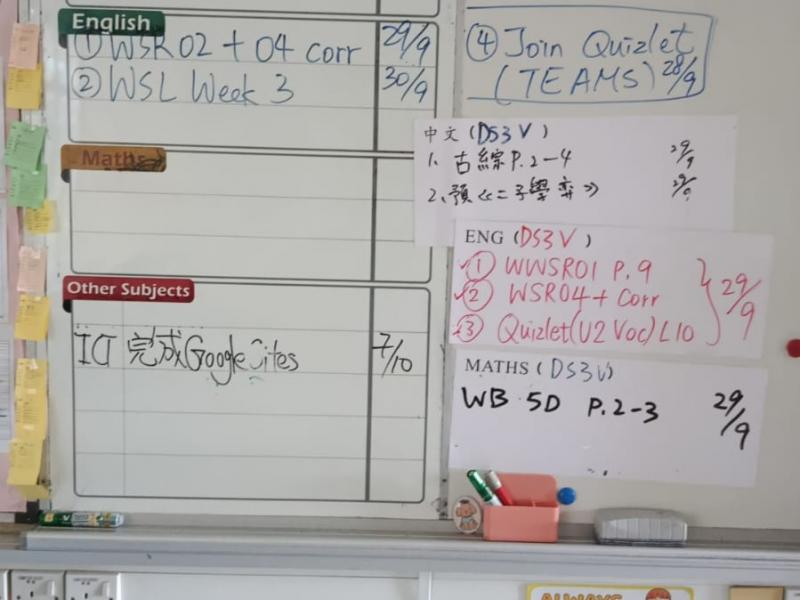 English
① WSR02 + 04 corr 29/9
② WSL Week 3 30/9
④ Join Quizlet
(TEAMS) 28/9
Maths
Other Subjects
ICT 完成Google Sites 7/10
中文 (DS3V)
1. 古綜 P.2-4 29/9
2. 預《二子學弈》 29/9
ENG (DS3V)
① WWSR01 P.9
② WSR04 + Corr
③ Quizlet(U2 Voc) L10
29/9
MATHS (DS3V)
WB 5D P.2-3 29/9
ALWAYS